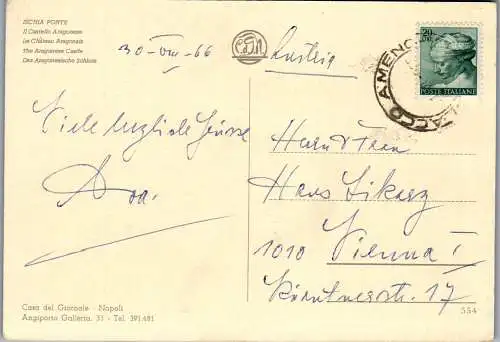 ISCHIA PONTE
Il Castello Aragonese
Le Château Aragonais
The Aragonese Castle
Das Aragonesische Schloss
30-VIII-66
Austria
20
POSTE ITALIANE
LACCO AMENO
Viele herzliche Grüsse
Herrn & Frau
Hans
1010 Vienna I
Kärntnerstr. 17
Casa del Giornale - Napoli
Angiporto Galleria, 33 - Tel. 391.681
554